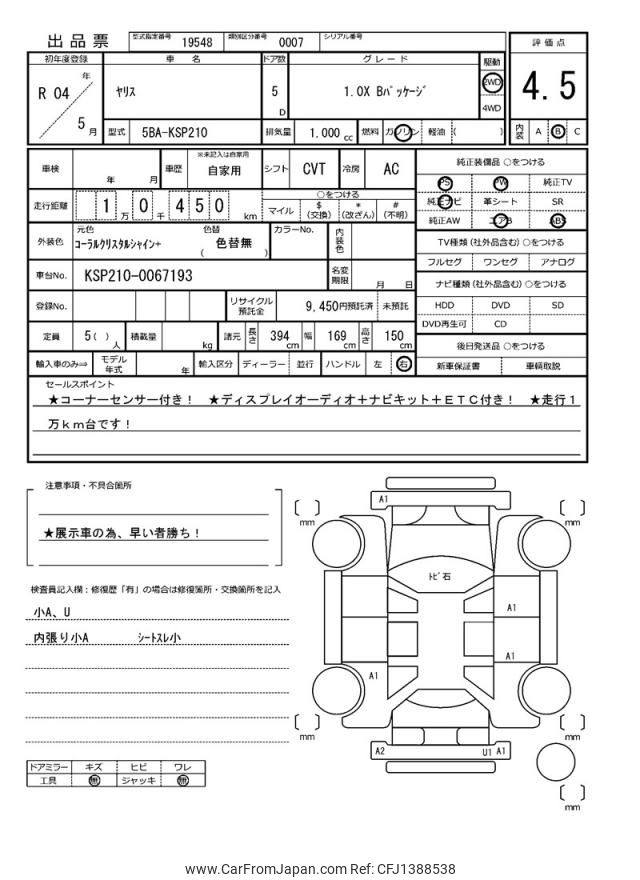 出品票 型式指定番号 19548 類別区分番号 0007 シリアル番号
評価点
初年度登録 車名 ドア数 グレード 駆動
R 04 年 5 月
ヤリス 5 D 1.0X Bパッケージ 2WD 4WD
4.5
型式 5BA-KSP210 排気量 1.000 cc 燃料 ガソリン 軽油 ( )
内装 A B C
車検 年 月 車歴 ※未記入は自家用 自家用 シフト CVT 冷房 AC
純正装備品 ○をつける
PS PW 純正TV
走行距離 1 万 0 千 4 5 0 km
○をつける
マイル $ (交換) * (改ざん) # (不明)
純正ナビ 革シート SR
純正AW エアB ABS
外装色 元色 コーラルクリスタルシャイン+ 色替 ( 色替無 ) カラーNo. 内装色
TV種類(社外品含む)○をつける
フルセグ ワンセグ アナログ
車台No. KSP210-0067193 名変期限 月 日
ナビ種類(社外品含む)○をつける
HDD DVD SD
DVD再生可 CD
登録No. リサイクル預託金 9,450円預託済 未預託
定員 5( ) 人 積載量 kg 諸元 長さ 394 cm 幅 169 cm 高さ 150 cm
後日発送品 ○をつける
新車保証書 車輌取説
輸入車のみ⇒ モデル年式 年 輸入区分 ディーラー 並行 ハンドル 左 右
セールスポイント
★コーナーセンサー付き! ★ディスプレイオーディオ+ナビキット+ETC付き! ★走行1
万km台です!
注意事項・不具合箇所
★展示車の為、早い者勝ち!
検査員記入欄:修復歴「有」の場合は修復箇所・交換箇所を記入
小A、U
内張り小A シートスレ小
ドアミラー キズ ヒビ ワレ
工具 無 ジャッキ 無
A1
mm
mm
トビ石
A1
A1
A1
mm
mm
A2 U1 A1
mm
www.CarFromJapan.com Ref: CFJ1388538